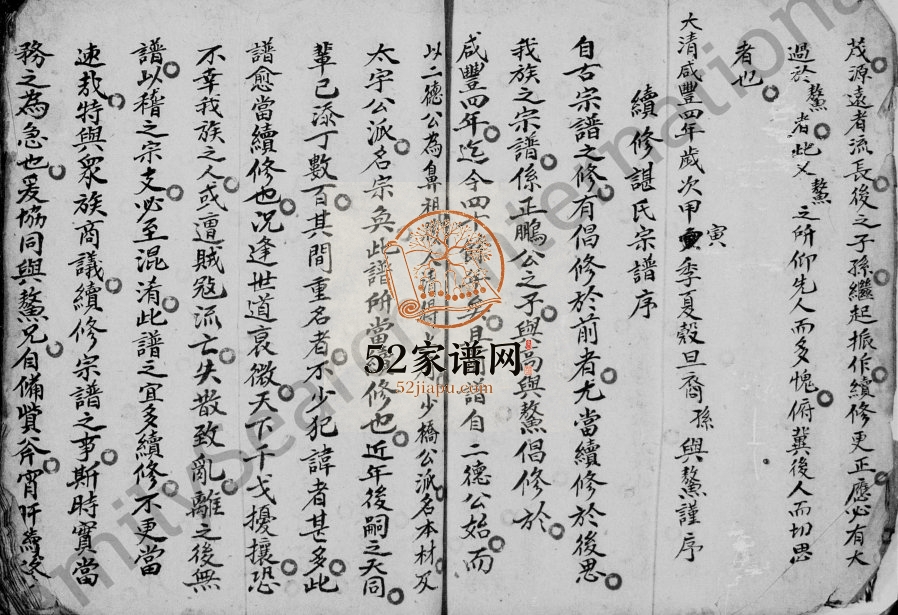 茂源遠者流長後之子孫繼起振作續修更正應必有大
過於鰲者此又鰲之所仰先人而多愧俯冀後人而切思
者也
大清咸豐四年歲次甲寅季夏穀旦裔孫與鰲謹序
續修諶氏宗譜序
自古宗譜之修有倡修於前者尤當續修於後思
我族之宗譜係正鵬公之子與高與鰲倡修於
咸豐四年迄今四十餘年矣且譜自二德公始而
以二德公為鼻祖 少橋公派名本材及
太宇公派名宗奐此譜所當 修也近年後嗣之天同
輩已添丁數百其間重名者不少犯諱者甚多此
譜愈當續修也况逢世道衰微天下干戈擾攘恐
不幸我族之人或遭賊冦流亡失散致亂離之後無
譜以稽之宗支必至混淆此譜之宜多續修不更當
速哉特與衆族商議續修宗譜之事斯時實當
務之為急也爰協同與鰲兄自備貲斧宵旰
52家谱网
52jiapu.com
FamilySearch International